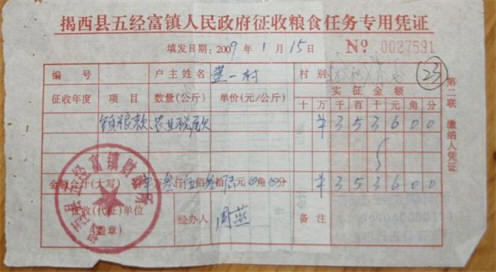 揭西县五经富镇人民政府征收粮食任务专用凭证
填发日期:2009年1月15日 № 0027591
编号 户主姓名 一村 村别 23
征收年度 项目 数量(公斤) 单价(元/公斤) 实征金额
十 万 千 百 十 元 角 分
领粮款、农业税款 ¥ 3 5 3 6 0 0
金额 (大写) 叁仟伍佰叁拾陆元00角00分 ¥ 3 5 3 6 0 0
征收(代征)单位
(盖章)
经办人 周燕 备注
第二联 缴纳人凭证
揭西县五经富镇财